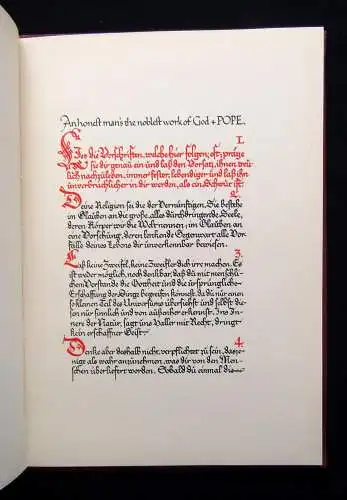 An honest man's the noblest work of God + POPE.
1.
Lies die Vorschriften, welche hier folgen, oft; präge
sie dir genau ein und laß den Vorsatz, ihnen treu-
lich nachzuleben, immer fester, lebendiger und laß ihn
unverbrüchlicher in dir werden, als ein Schwur ist.
2.
Deine Religion sei die der Vernünftigen. Sie bestehe
im Glauben an die große, alles durchdringende Seele,
deren Körper wir die Welt nennen; im Glauben an
eine Vorsehung, deren lenkende Gegenwart alle Vor-
fälle deines Lebens dir unverkennbar beweisen.
3.
Laß keine Zweifel, keine Zweifler dich irre machen. Es
ist weder möglich, noch denkbar, daß du mit menschli-
chem Verstande die Gottheit und die ursprüngliche
Erschaffung der Dinge begreifen könntest, da du nur einen
kleinen Teil des Universums übersiehst und selbst die-
sen nur sinnlich und von außen her erkennst. Ins In-
nere der Natur, sagt uns Haller mit Recht, dringt
kein erschaffner Geist.
4.
Denke aber deshalb nicht, verpflichtet zu sein, dasje-
nige als wahr anzunehmen, was dir von den Men-
schen überliefert worden. Sobald du einmal die